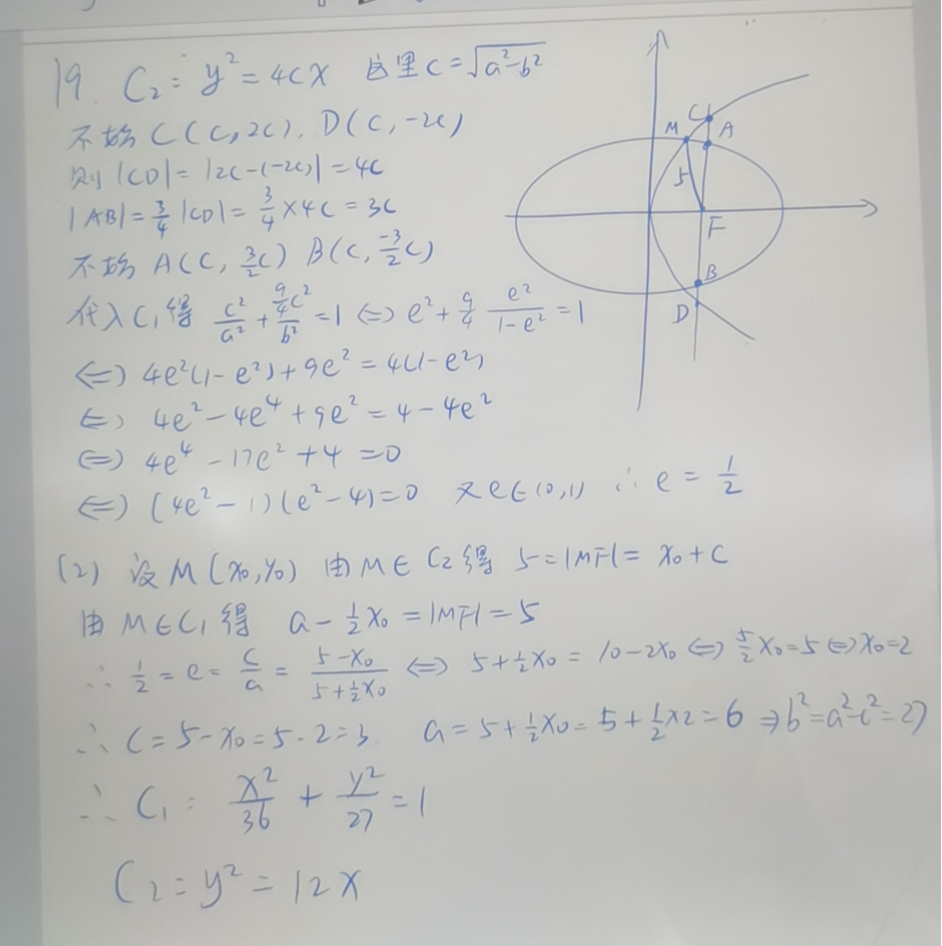 19. C₂: y² = 4cx 这里 c = √(a²-b²)
不妨 C(c, 2c), D(c, -2c)
则 |CD| = |2c-(-2c)| = 4c
|AB| = 3/4 |CD| = 3/4 × 4c = 3c
不妨 A(c, 3/2 c) B(c, -3/2 c)
代入 C₁ 得 c²/a² + (9/4 c²)/b² = 1 ⇔ e² + 9/4 e²/(1-e²) = 1
⇔ 4e²(1-e²) + 9e² = 4(1-e²)
⇔ 4e² - 4e⁴ + 9e² = 4 - 4e²
⇔ 4e⁴ - 17e² + 4 = 0
⇔ (4e²-1)(e²-4) = 0 又 e∈(0,1) ∴ e = 1/2
(2) 设 M(x₀, y₀) 由 M∈C₂ 得 5 = |MF| = x₀ + c
由 M∈C₁ 得 a - 1/2 x₀ = |MF| = 5
∴ 1/2 = e = c/a = (5-x₀)/(5+1/2 x₀) ⇔ 5 + 1/2 x₀ = 10 - 2x₀ ⇔ 5/2 x₀ = 5 ⇔ x₀ = 2
∴ c = 5 - x₀ = 5 - 2 = 3. a = 5 + 1/2 x₀ = 5 + 1/2 × 2 = 6 ⇒ b² = a² - c² = 27
∴ C₁: x²/36 + y²/27 = 1
C₂: y² = 12x
C
M
A
5
F
B
D